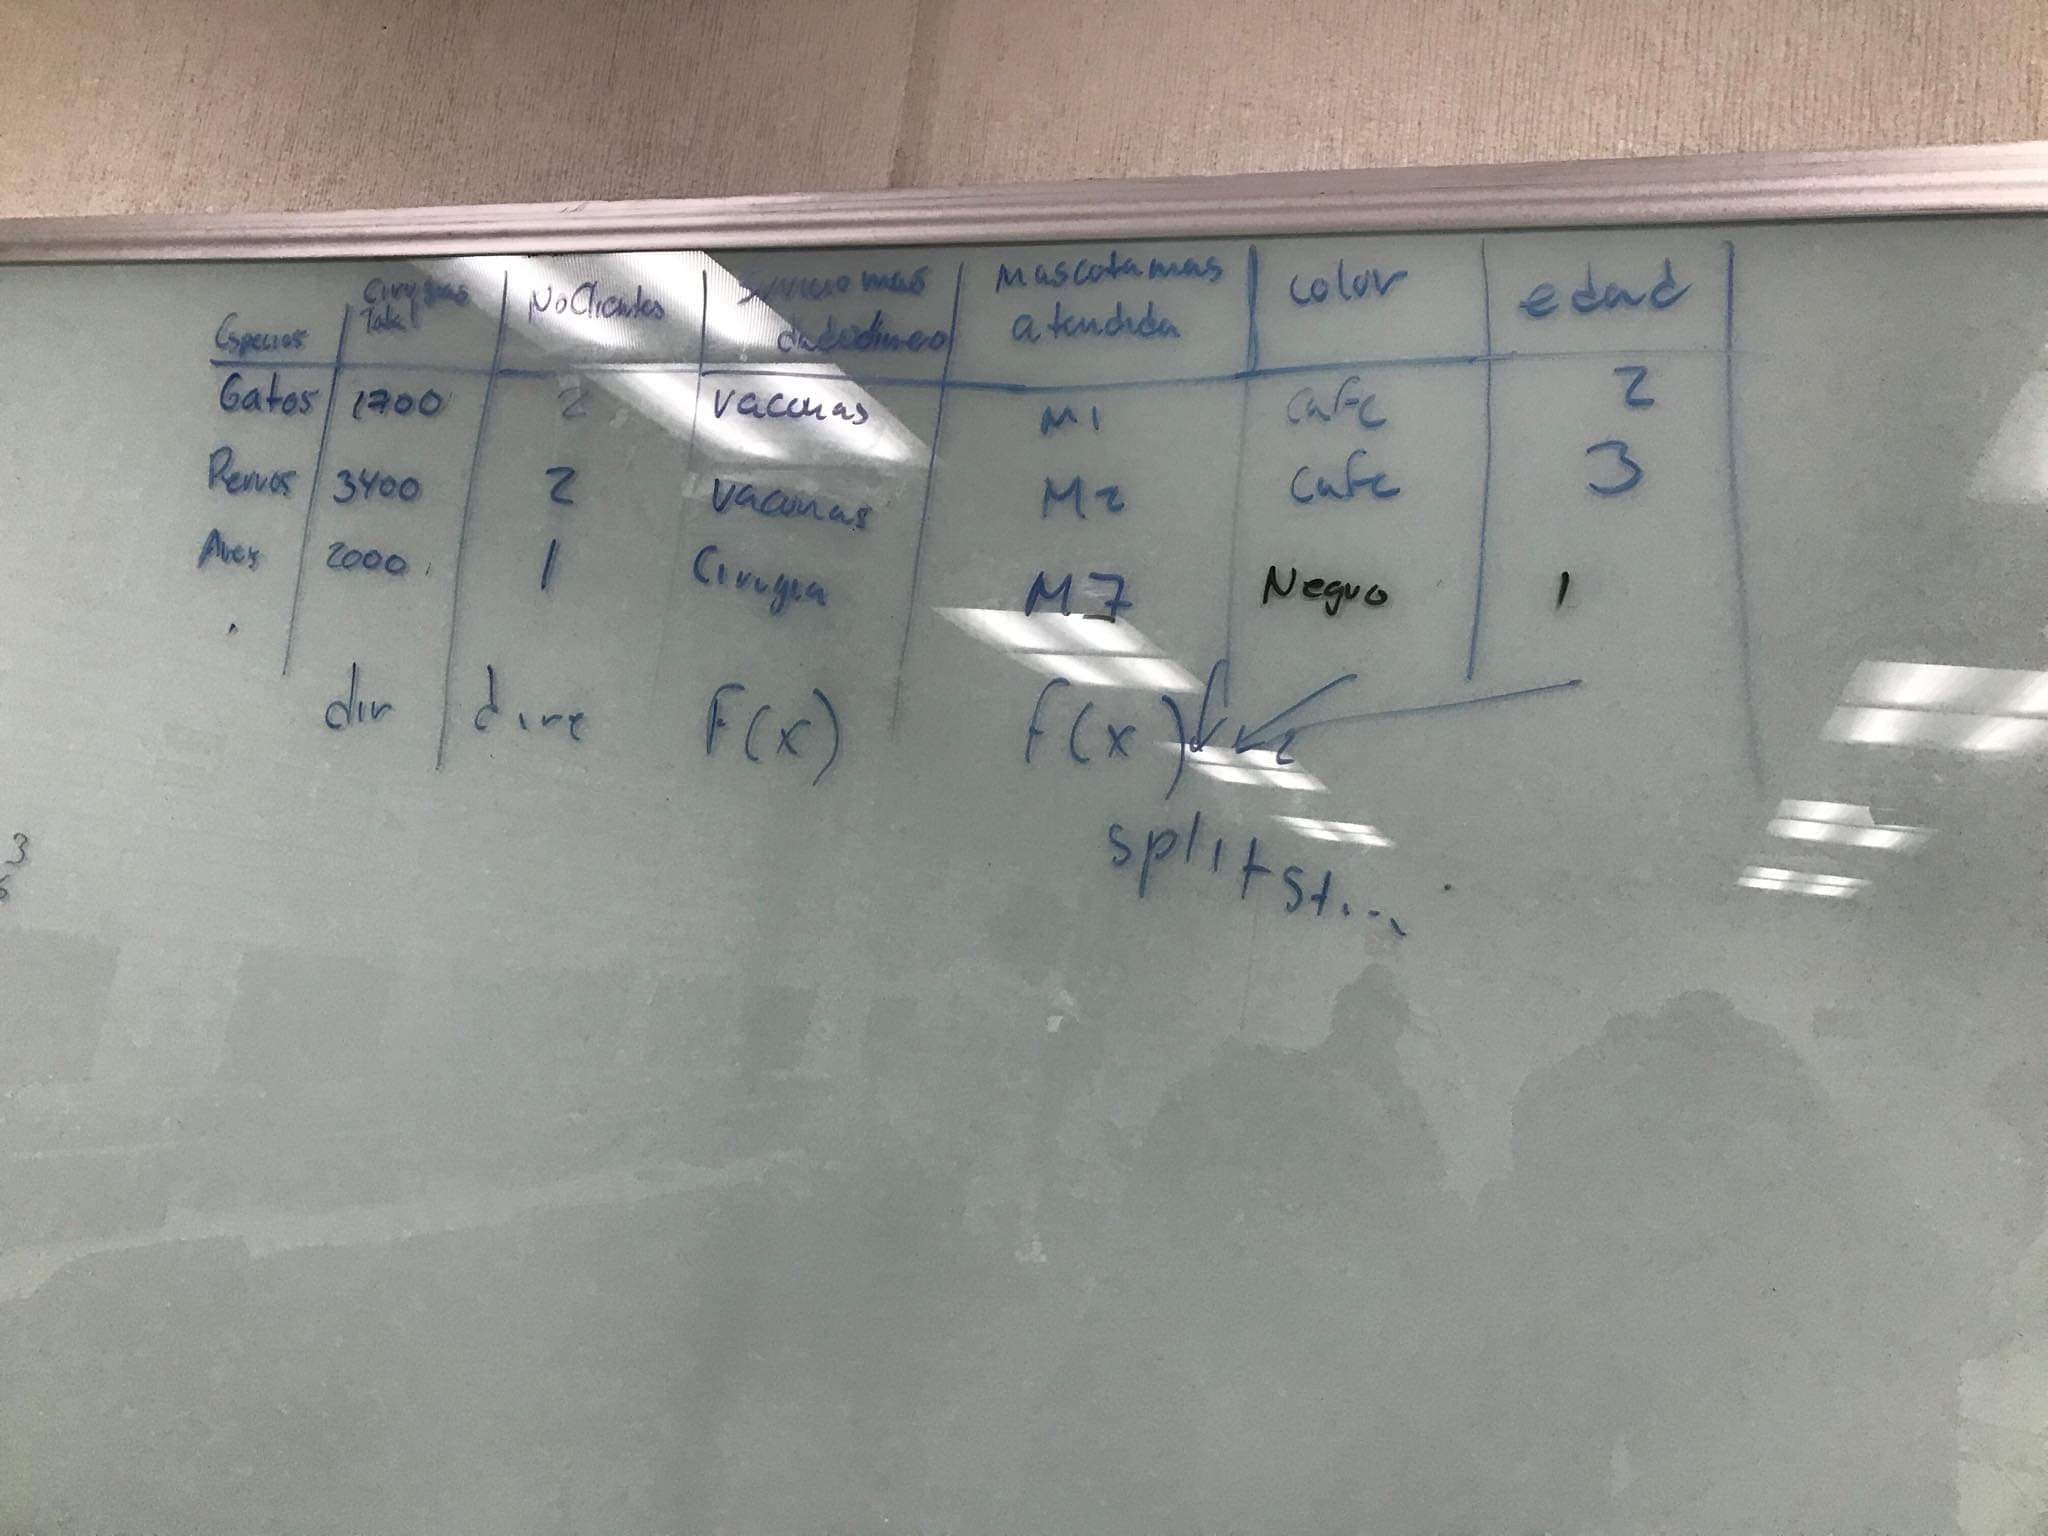 Especies | Cirugias Total | No Clientes | Servicio mas dado dinero | Mascota mas atendida | color | edad
Gatos | 1700 | 2 | vacunas | M1 | cafe | 2
Perros | 3400 | 2 | vacunas | M2 | cafe | 3
Aves | 2000 | 1 | Cirugia | M7 | Negro | 1
dir | dire | F(x) | F(x)
split st...
3